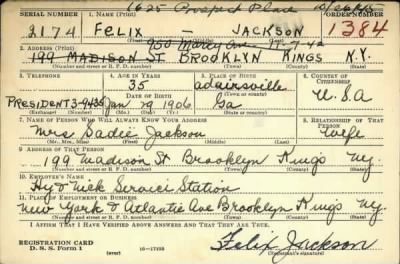 1625 Prospect Place
SERIAL NUMBER 1. NAME (Print) ORDER NUMBER
2174 FELIX — JACKSON 1384
(First) (Middle) (Last)
2. ADDRESS (Print)
199 MADISON ST BROOKLYN KINGS N.Y.
(Number and street or R. F. D. number) (Town) (County) (State)
3. TELEPHONE 4. AGE IN YEARS 5. PLACE OF BIRTH 6. COUNTRY OF CITIZENSHIP
35 adairsville
DATE OF BIRTH (Town or county)
PRESIDENT 3-9435 Jan 19 1906 Ga U.S.A
(Exchange) (Number) (Mo.) (Day) (Yr.) (State or country)
7. NAME OF PERSON WHO WILL ALWAYS KNOW YOUR ADDRESS 8. RELATIONSHIP OF THAT PERSON
Mrs Sadie Jackson Wife
(Mr., Mrs., Miss) (First) (Middle) (Last)
9. ADDRESS OF THAT PERSON
199 Madison St Brooklyn Kings Ny.
(Number and street or R. F. D. number) (Town) (County) (State)
10. EMPLOYER'S NAME
Hy & Nick Service Station
11. PLACE OF EMPLOYMENT OR BUSINESS
New York & Atlantic Ave Brooklyn Kings Ny.
(Number and street or R. F. D. number) (Town) (County) (State)
I AFFIRM THAT I HAVE VERIFIED ABOVE ANSWERS AND THAT THEY ARE TRUE.
REGISTRATION CARD
D. S. S. FORM 1 (over) 16—17105
Felix Jackson